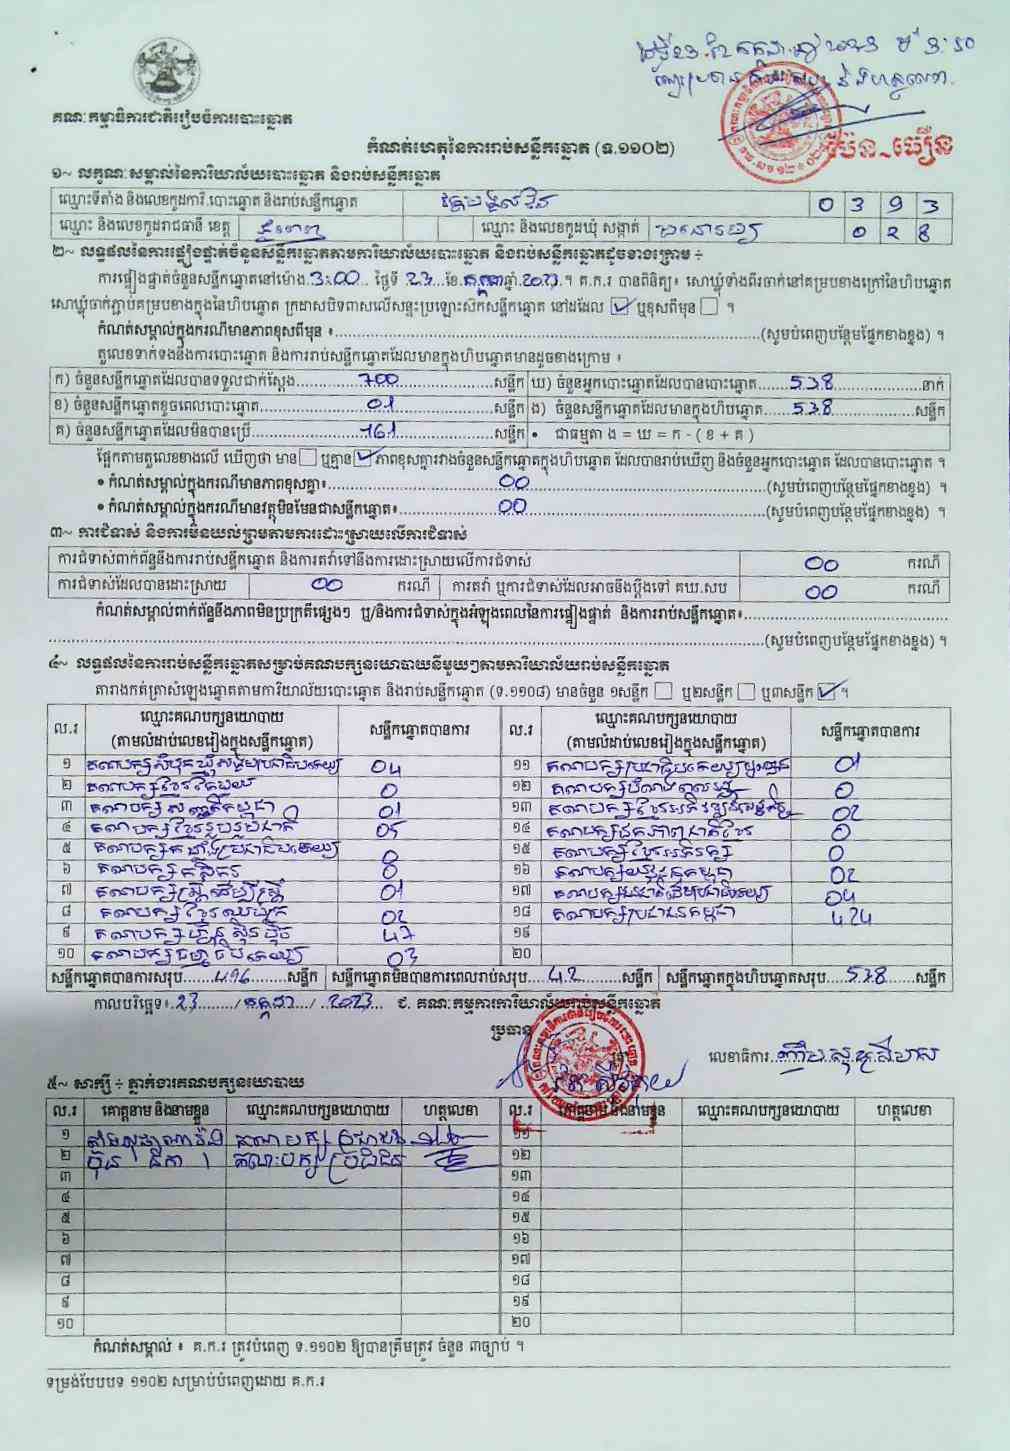 គណៈកម្មាធិការជាតិរៀបចំការបោះឆ្នោត
កំណត់ហេតុនៃការរាប់សន្លឹកឆ្នោត (ទ.១១០២)
ប៉ែន ធឿន
១~ លក្ខណៈសម្គាល់នៃការិយាល័យបោះឆ្នោត និងរាប់សន្លឹកឆ្នោត
ឈ្មោះទីតាំង និងលេខកូដការិ.បោះឆ្នោត និងរាប់សន្លឹកឆ្នោត 0 3 9 3
ឈ្មោះ និងលេខកូដរាជធានី ខេត្ត ឈ្មោះ និងលេខកូដឃុំ សង្កាត់ 0 2 8
២~ លទ្ធផលនៃការផ្ទៀងផ្ទាត់ចំនួនសន្លឹកឆ្នោតតាមការិយាល័យបោះឆ្នោត និងរាប់សន្លឹកឆ្នោតដូចខាងក្រោម ÷
ការផ្ទៀងផ្ទាត់ចំនួនសន្លឹកឆ្នោតនៅម៉ោង 3:00 ថ្ងៃទី 23 ខែ កក្កដា ឆ្នាំ 2023 ។ គ.ក.រ បានពិនិត្យ៖ សោឃ្លុំទាំងពីរចាក់នៅគម្របខាងក្រៅនៃហិបឆ្នោត
សោឃ្លុំចាក់ភ្ជាប់គម្របខាងក្នុងនៃហិបឆ្នោត ក្រដាសបិទពាសលើសន្ទះប្រឡោះស៊កសន្លឹកឆ្នោត នៅដដែល ☑ ឬខុសពីមុន ☐ ។
កំណត់សម្គាល់ក្នុងករណីមានភាពខុសពីមុន ៖ (សូមបំពេញបន្ថែមផ្នែកខាងខ្នង) ។
តួលេខទាក់ទងនឹងការបោះឆ្នោត និងការរាប់សន្លឹកឆ្នោតដែលមានក្នុងហិបឆ្នោតមានដូចខាងក្រោម ៖
ក) ចំនួនសន្លឹកឆ្នោតដែលបានទទួលជាក់ស្តែង 700 សន្លឹក ឃ) ចំនួនអ្នកបោះឆ្នោតដែលបានបោះឆ្នោត 538 នាក់
ខ) ចំនួនសន្លឹកឆ្នោតខូចពេលបោះឆ្នោត 01 សន្លឹក ង) ចំនួនសន្លឹកឆ្នោតដែលមានក្នុងហិបឆ្នោត 538 សន្លឹក
គ) ចំនួនសន្លឹកឆ្នោតដែលមិនបានប្រើ 161 សន្លឹក • ជាធម្មតា ង = ឃ = ក - ( ខ + គ )
ផ្អែកតាមតួលេខខាងលើ ឃើញថា មាន ☐ ឬគ្មាន ☑ ភាពខុសគ្នារវាងចំនួនសន្លឹកឆ្នោតក្នុងហិបឆ្នោត ដែលបានរាប់ឃើញ និងចំនួនអ្នកបោះឆ្នោត ដែលបានបោះឆ្នោត ។
• កំណត់សម្គាល់ក្នុងករណីមានភាពខុសគ្នា៖ 00 (សូមបំពេញបន្ថែមផ្នែកខាងខ្នង) ។
• កំណត់សម្គាល់ក្នុងករណីមានវត្ថុមិនមែនជាសន្លឹកឆ្នោត៖ 00 (សូមបំពេញបន្ថែមផ្នែកខាងខ្នង) ។
៣~ ការជំទាស់ និងការមិនយល់ព្រមតាមការដោះស្រាយលើការជំទាស់
ការជំទាស់ពាក់ព័ន្ធនឹងការរាប់សន្លឹកឆ្នោត និងការតវ៉ាទៅនឹងការដោះស្រាយលើការជំទាស់ 00 ករណី
ការជំទាស់ដែលបានដោះស្រាយ 00 ករណី ការតវ៉ា ឬការជំទាស់ដែលអាចនឹងប្តឹងទៅ គឃ.សប 00 ករណី
កំណត់សម្គាល់ពាក់ព័ន្ធនឹងភាពមិនប្រក្រតីផ្សេងៗ ឬ/និងការជំទាស់ក្នុងអំឡុងពេលនៃការផ្ទៀងផ្ទាត់ និងការរាប់សន្លឹកឆ្នោត៖
(សូមបំពេញបន្ថែមផ្នែកខាងខ្នង) ។
៤~ លទ្ធផលនៃការរាប់សន្លឹកឆ្នោតសម្រាប់គណបក្សនយោបាយនីមួយៗតាមការិយាល័យរាប់សន្លឹកឆ្នោត
តារាងកត់ត្រាសំឡេងឆ្នោតតាមការិយាល័យបោះឆ្នោត និងរាប់សន្លឹកឆ្នោត (ទ.១១០៨) មានចំនួន ១សន្លឹក ☐ ឬ២សន្លឹក ☐ ឬ៣សន្លឹក ☑ ។
ល.រ ឈ្មោះគណបក្សនយោបាយ (តាមលំដាប់លេខរៀងក្នុងសន្លឹកឆ្នោត) សន្លឹកឆ្នោតបានការ ល.រ ឈ្មោះគណបក្សនយោបាយ (តាមលំដាប់លេខរៀងក្នុងសន្លឹកឆ្នោត) សន្លឹកឆ្នោតបានការ
១ គណបក្សសំបុកឃ្មុំសង្គមប្រជាធិបតេយ្យ 04 ១១ គណបក្សប្រជាធិបតេយ្យមូលដ្ឋាន 01
២ គណបក្សខ្មែរតែមួយ 0 ១២ 0
៣ គណបក្សសញ្ជាតិកម្ពុជា 01 ១៣ គណបក្សខ្មែរអភិវឌ្ឍន៍សេដ្ឋកិច្ច 02
៤ គណបក្សខ្មែររួបរួមជាតិ 05 ១៤ គណបក្សឯកភាពជាតិខ្មែរ 0
៥ គណបក្សកម្លាំងប្រជាធិបតេយ្យ 0 ១៥ គណបក្សខ្មែរអភិរក្ស 0
៦ គណបក្សកសិករ 0 ១៦ គណបក្សយុវជនកម្ពុជា 02
៧ គណបក្សស្ត្រីដើម្បីស្ត្រី 01 ១៧ 04
៨ គណបក្សខ្មែរឈប់ក្រ 02 ១៨ គណបក្សប្រជាជនកម្ពុជា 424
៩ គណបក្សហ៊្វុនស៊ិនប៉ិច 47 ១៩
១០ គណបក្សធម្មាធិបតេយ្យ 03 ២០
សន្លឹកឆ្នោតបានការសរុប 496 សន្លឹក សន្លឹកឆ្នោតមិនបានការពេលរាប់សរុប 42 សន្លឹក សន្លឹកឆ្នោតក្នុងហិបឆ្នោតសរុប 538 សន្លឹក
កាលបរិច្ឆេទ៖ 23 / កក្កដា / 2023 ជ. គណៈកម្មការការិយាល័យរាប់សន្លឹកឆ្នោត
ប្រធាន
លេខាធិការ
៥~ សាក្សី ÷ ភ្នាក់ងារគណបក្សនយោបាយ
ល.រ គោត្តនាម និងនាមខ្លួន ឈ្មោះគណបក្សនយោបាយ ហត្ថលេខា ល.រ គោត្តនាម និងនាមខ្លួន ឈ្មោះគណបក្សនយោបាយ ហត្ថលេខា
១ គណបក្ស ប្រជាជន ១១
២ គណៈបក្ស ១២
៣ ១៣
៤ ១៤
៥ ១៥
៦ ១៦
៧ ១៧
៨ ១៨
៩ ១៩
១០ ២០
កំណត់សម្គាល់ ៖ គ.ក.រ ត្រូវបំពេញ ទ.១១០២ ឱ្យបានត្រឹមត្រូវ ចំនួន ៣ច្បាប់ ។
ទម្រង់បែបបទ ១១០២ សម្រាប់បំពេញដោយ គ.ក.រ